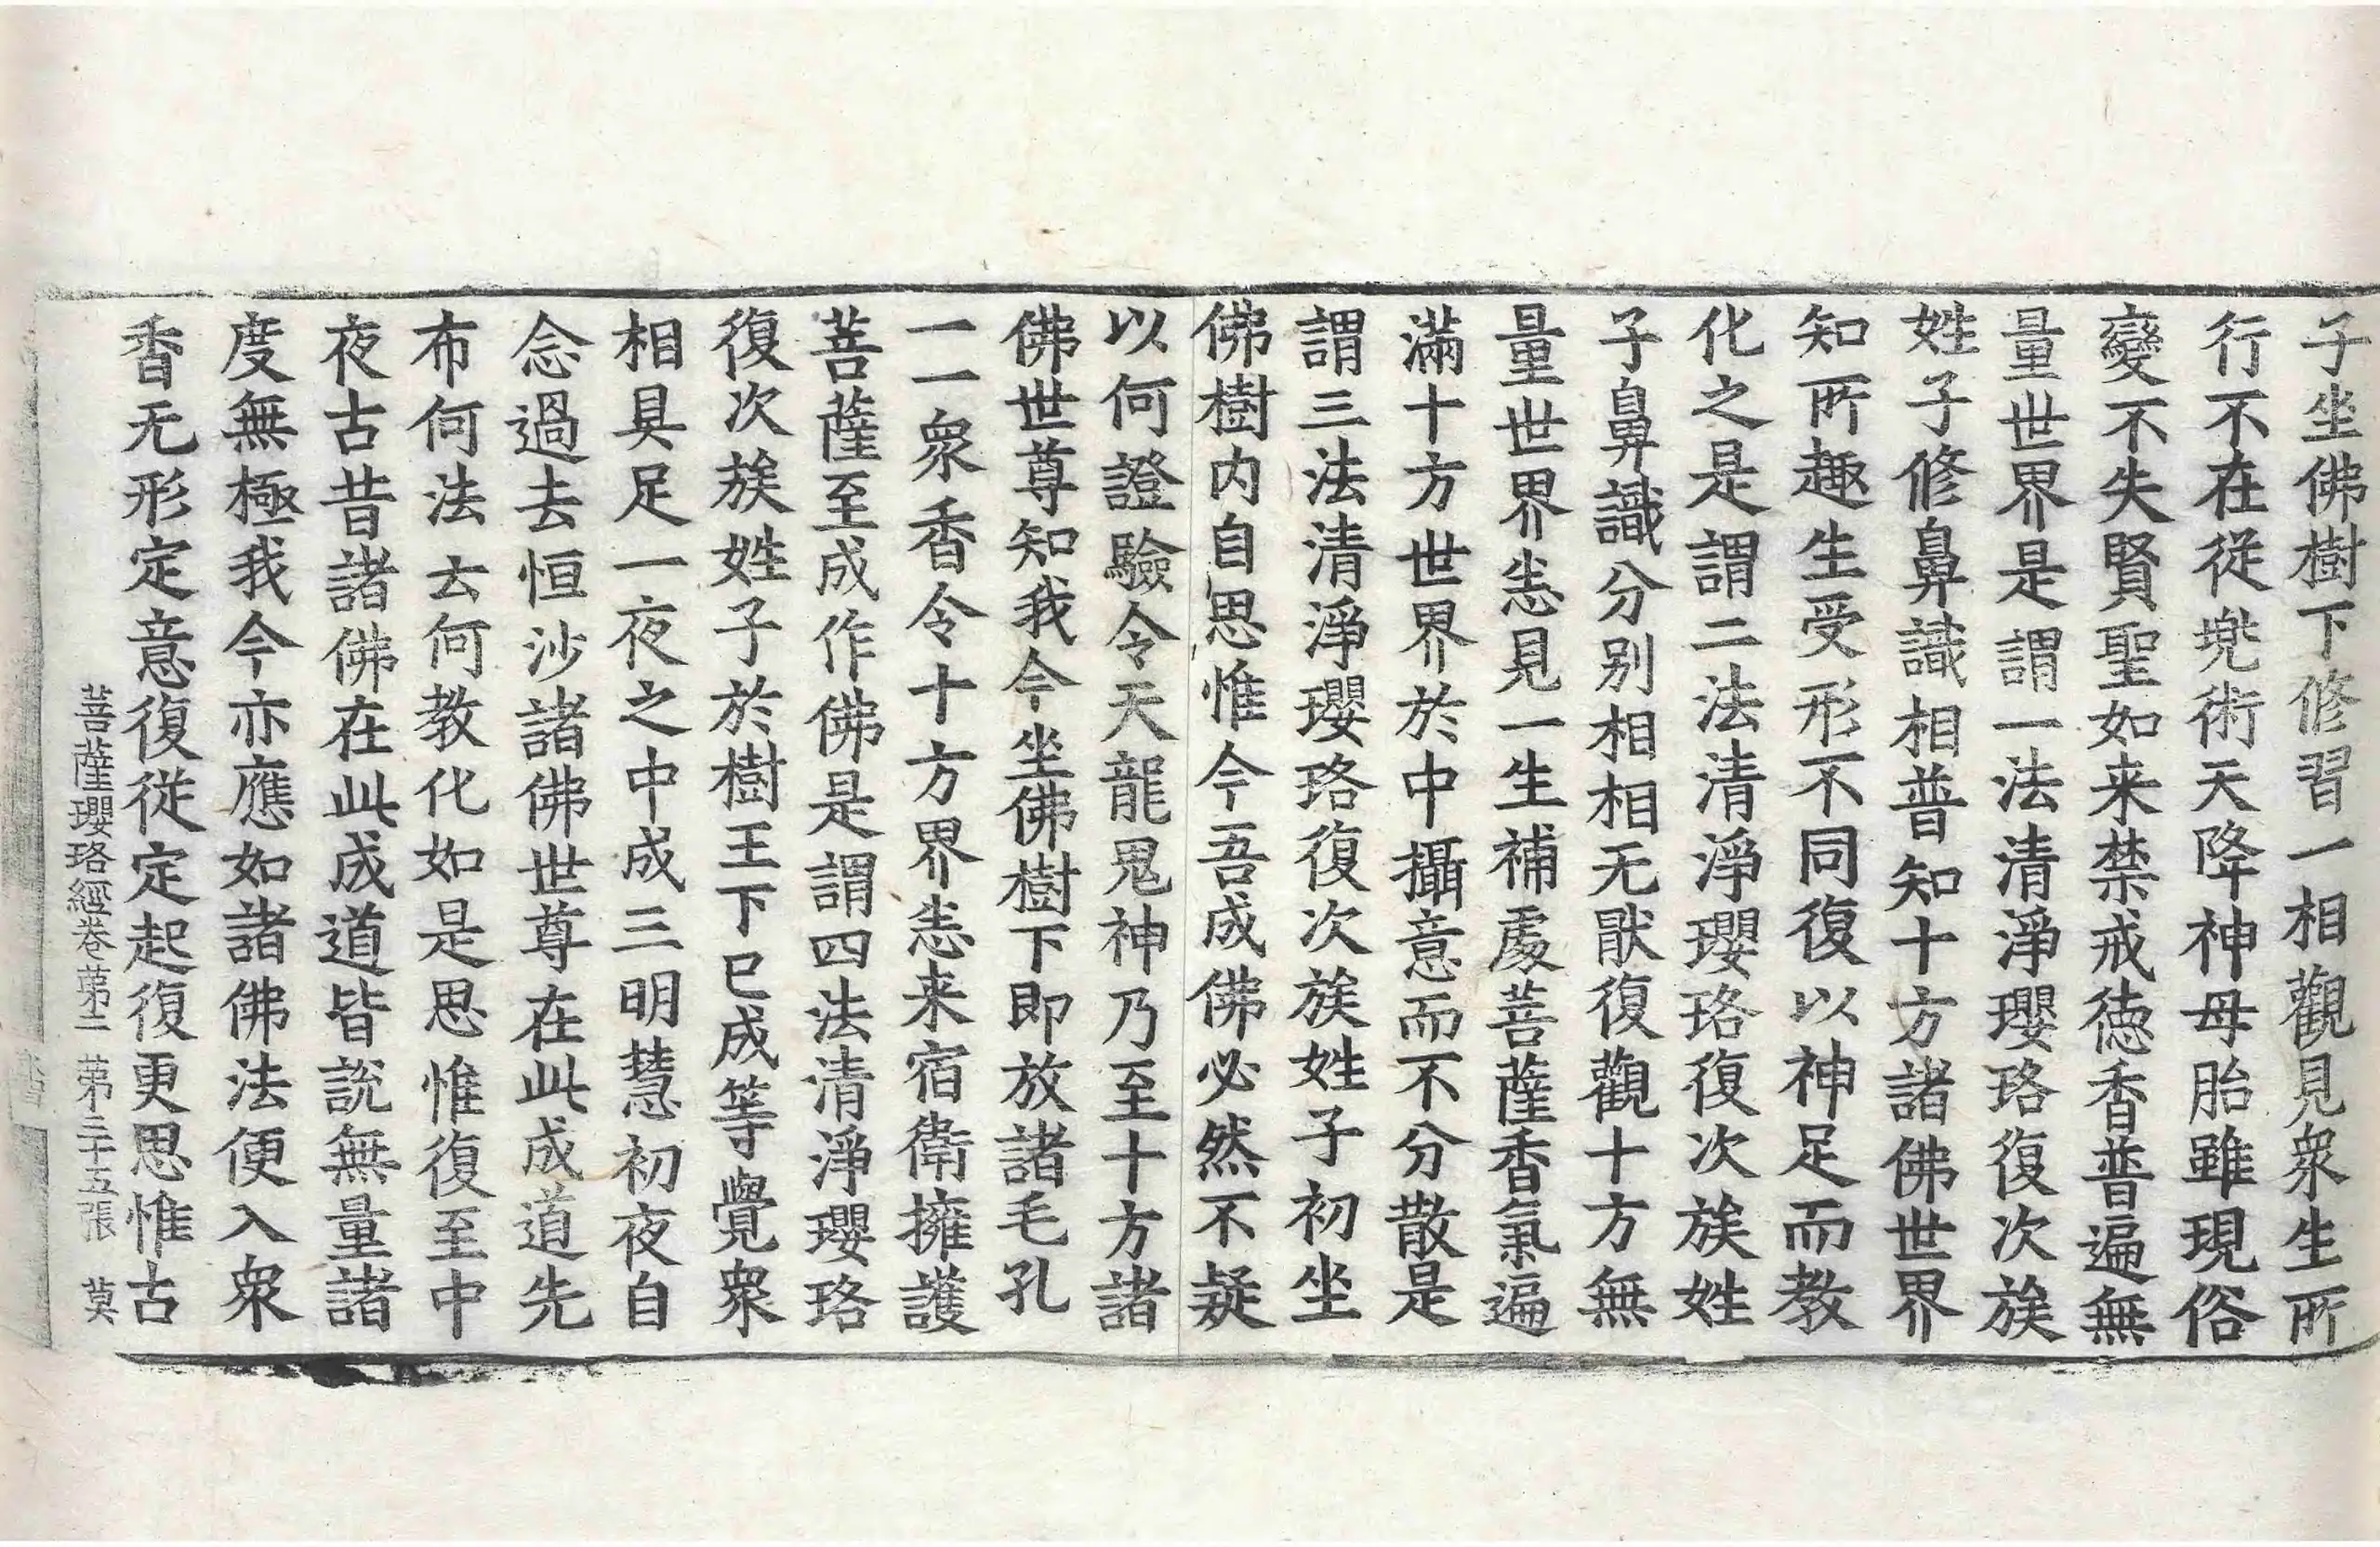 子坐佛樹下修習一相觀見衆生所
行不在從兠術天降神母胎雖現俗
變不失賢聖如来禁戒德香普遍無
量世界是謂一法清淨瓔珞復次族
姓子修鼻識相普知十方諸佛世界
知所趣生受形不同復以神足而教
化之是謂二法清淨瓔珞復次族姓
子鼻識分别相相无猒復觀十方無
量世界悉見一生補處菩薩香氣遍
滿十方世界於中攝意而不分散是
謂三法清淨瓔珞復次族姓子初坐
佛樹内自思惟今吾成佛必然不疑
以何證驗令天龍鬼神乃至十方諸
佛世尊知我今坐佛樹下即放諸毛孔
一一衆香令十方界悉来宿衛擁護
菩薩至成作佛是謂四法清淨瓔珞
復次族姓子於樹王下已成等覺衆
相具足一夜之中成三明慧初夜自
念過去恒沙諸佛世尊在此成道先
布何法去何教化如是思惟復至中
夜古昔諸佛在此成道皆說無量諸
度無極我今亦應如諸佛法便入衆
香无形定意復從定起復更思惟古
菩薩瓔珞經卷苐十二 苐二十五張 莫